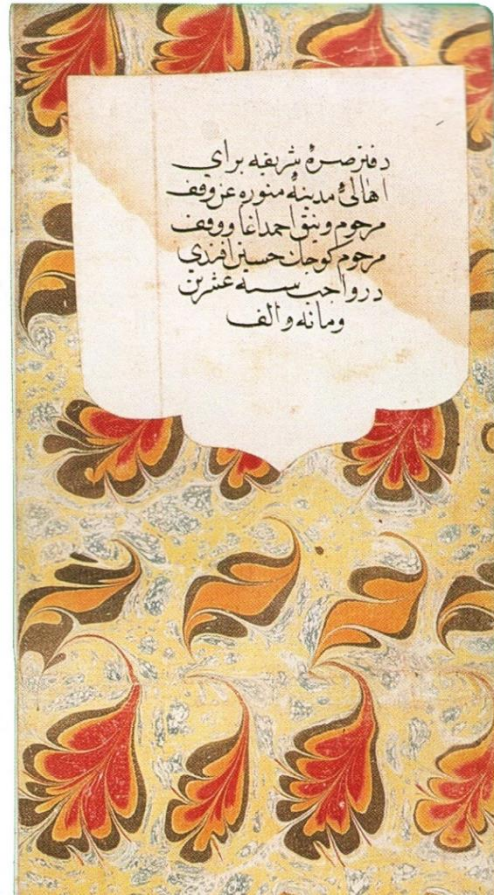 دفتر صرهٔ شریفه برای
اهالیٔ مدینهٔ منوره عن وقف
مرحوم احمد اغا ووقف
مرحوم کوچک حسین افندی
در واجب سنه عشرین
ومائه والف